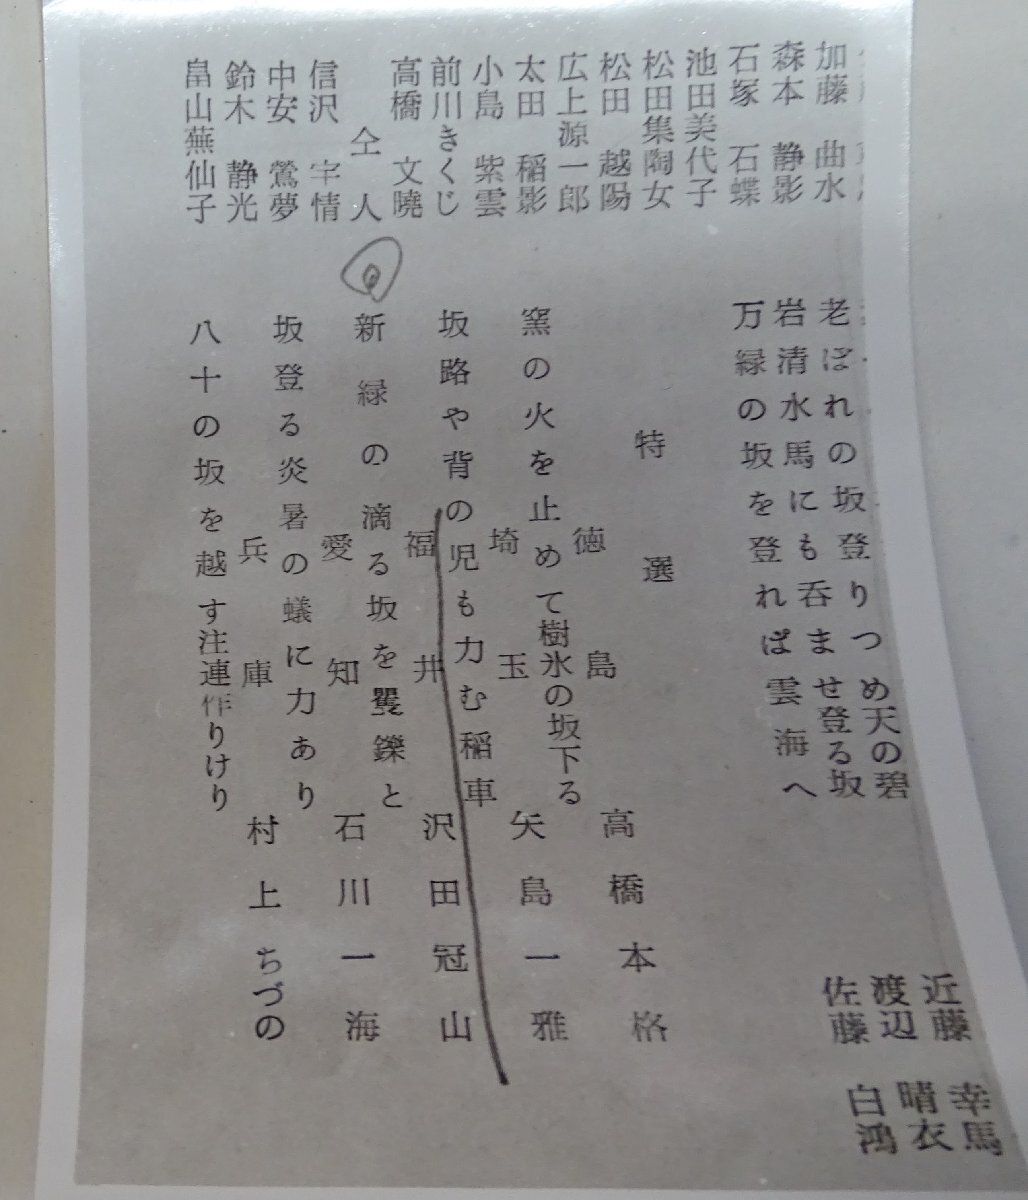 加藤 曲水
森本 静影
石塚 石蝶
池田美代子
松田集陶女
松田 越陽
広上源一郎
太田 稲影
小島 紫雲
前川きくじ
高橋 文曉
仝 人
信沢 宇情
中安 鶯夢
鈴木 静光
畠山蕪仙子
老ぼれの坂登りつめ天の碧 近藤 幸馬
岩清水馬にも呑ませ登る坂 渡辺 晴衣
万緑の坂を登れば雲海へ 佐藤 白鴻
特選
徳島 高橋本格
窯の火を止めて樹氷の坂下る
埼玉 矢島一雅
坂路や背の児も力む稲車
福井 沢田冠山
新緑の滴る坂を矍鑠と
愛知 石川一海
坂登る炎暑の蟻に力あり
兵庫 村上ちづの
八十の坂を越す注連作りけり